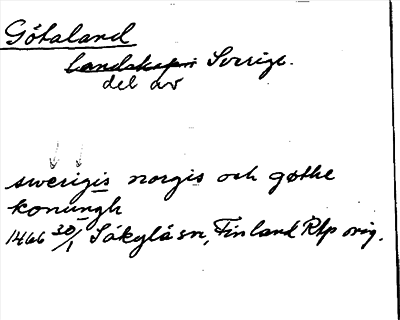 Götaland
landskap i Sverige.
del av
swerigis norgis och gøthe
konungh
1466 30/1 Säkylä sn, Finland RAp orig.